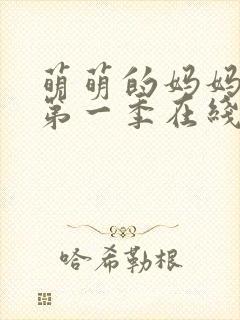 萌萌的妈妈
第一季在线
哈希勒根